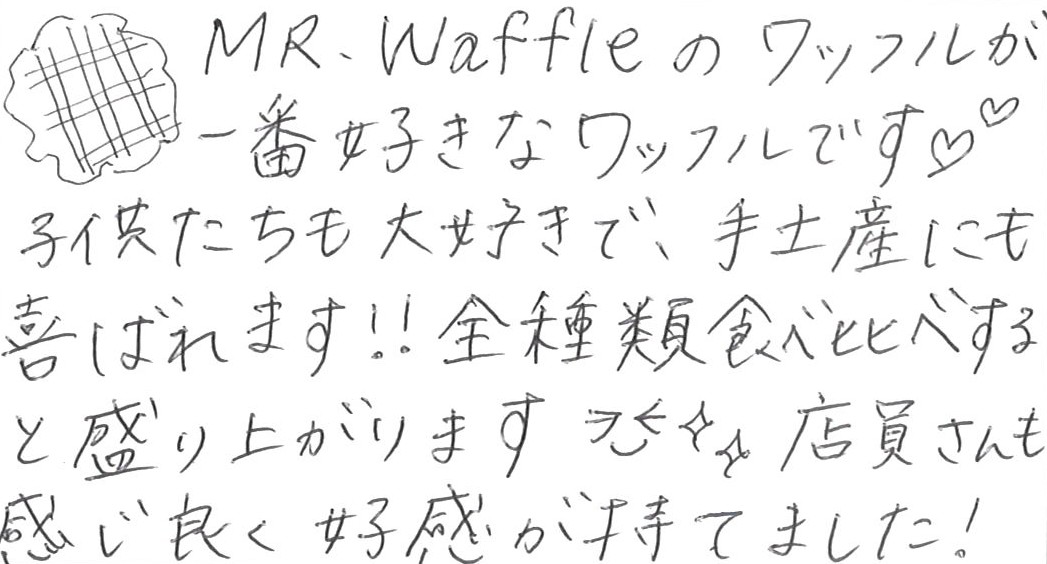 MR. Waffleのワッフルが
一番好きなワッフルです♡♡
子供たちも大好きで、手土産にも
喜ばれます!!全種類食べ比べする
と盛り上がります 店員さんも
感じ良く好感が持てました!